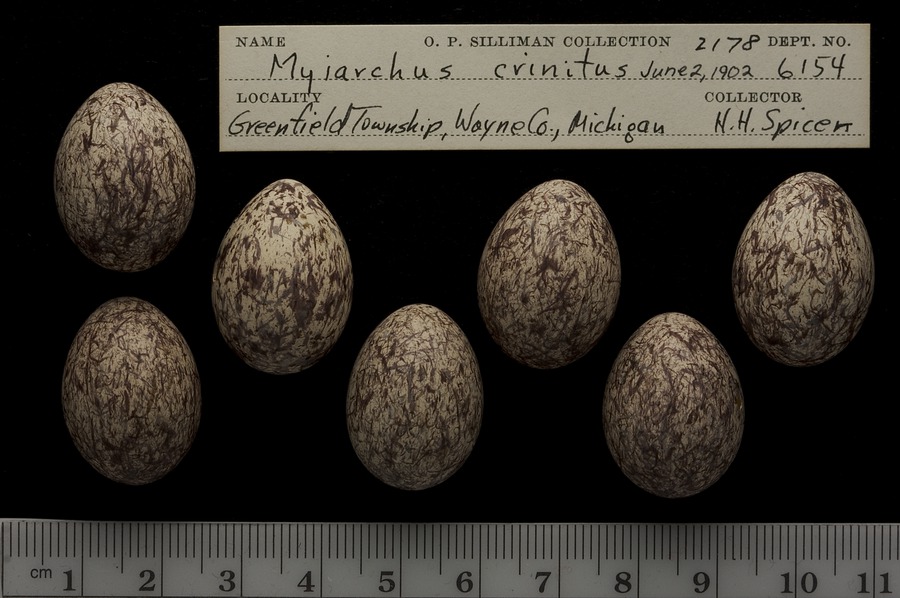 NAME O. P. SILLIMAN COLLECTION 2178 DEPT. NO.
Myiarchus crinitus June 2, 1902 6154
LOCALITY COLLECTOR
Greenfield Township, Wayne Co., Michigan N.H. Spicer
cm 1 2 3 4 5 6 7 8 9 10 11